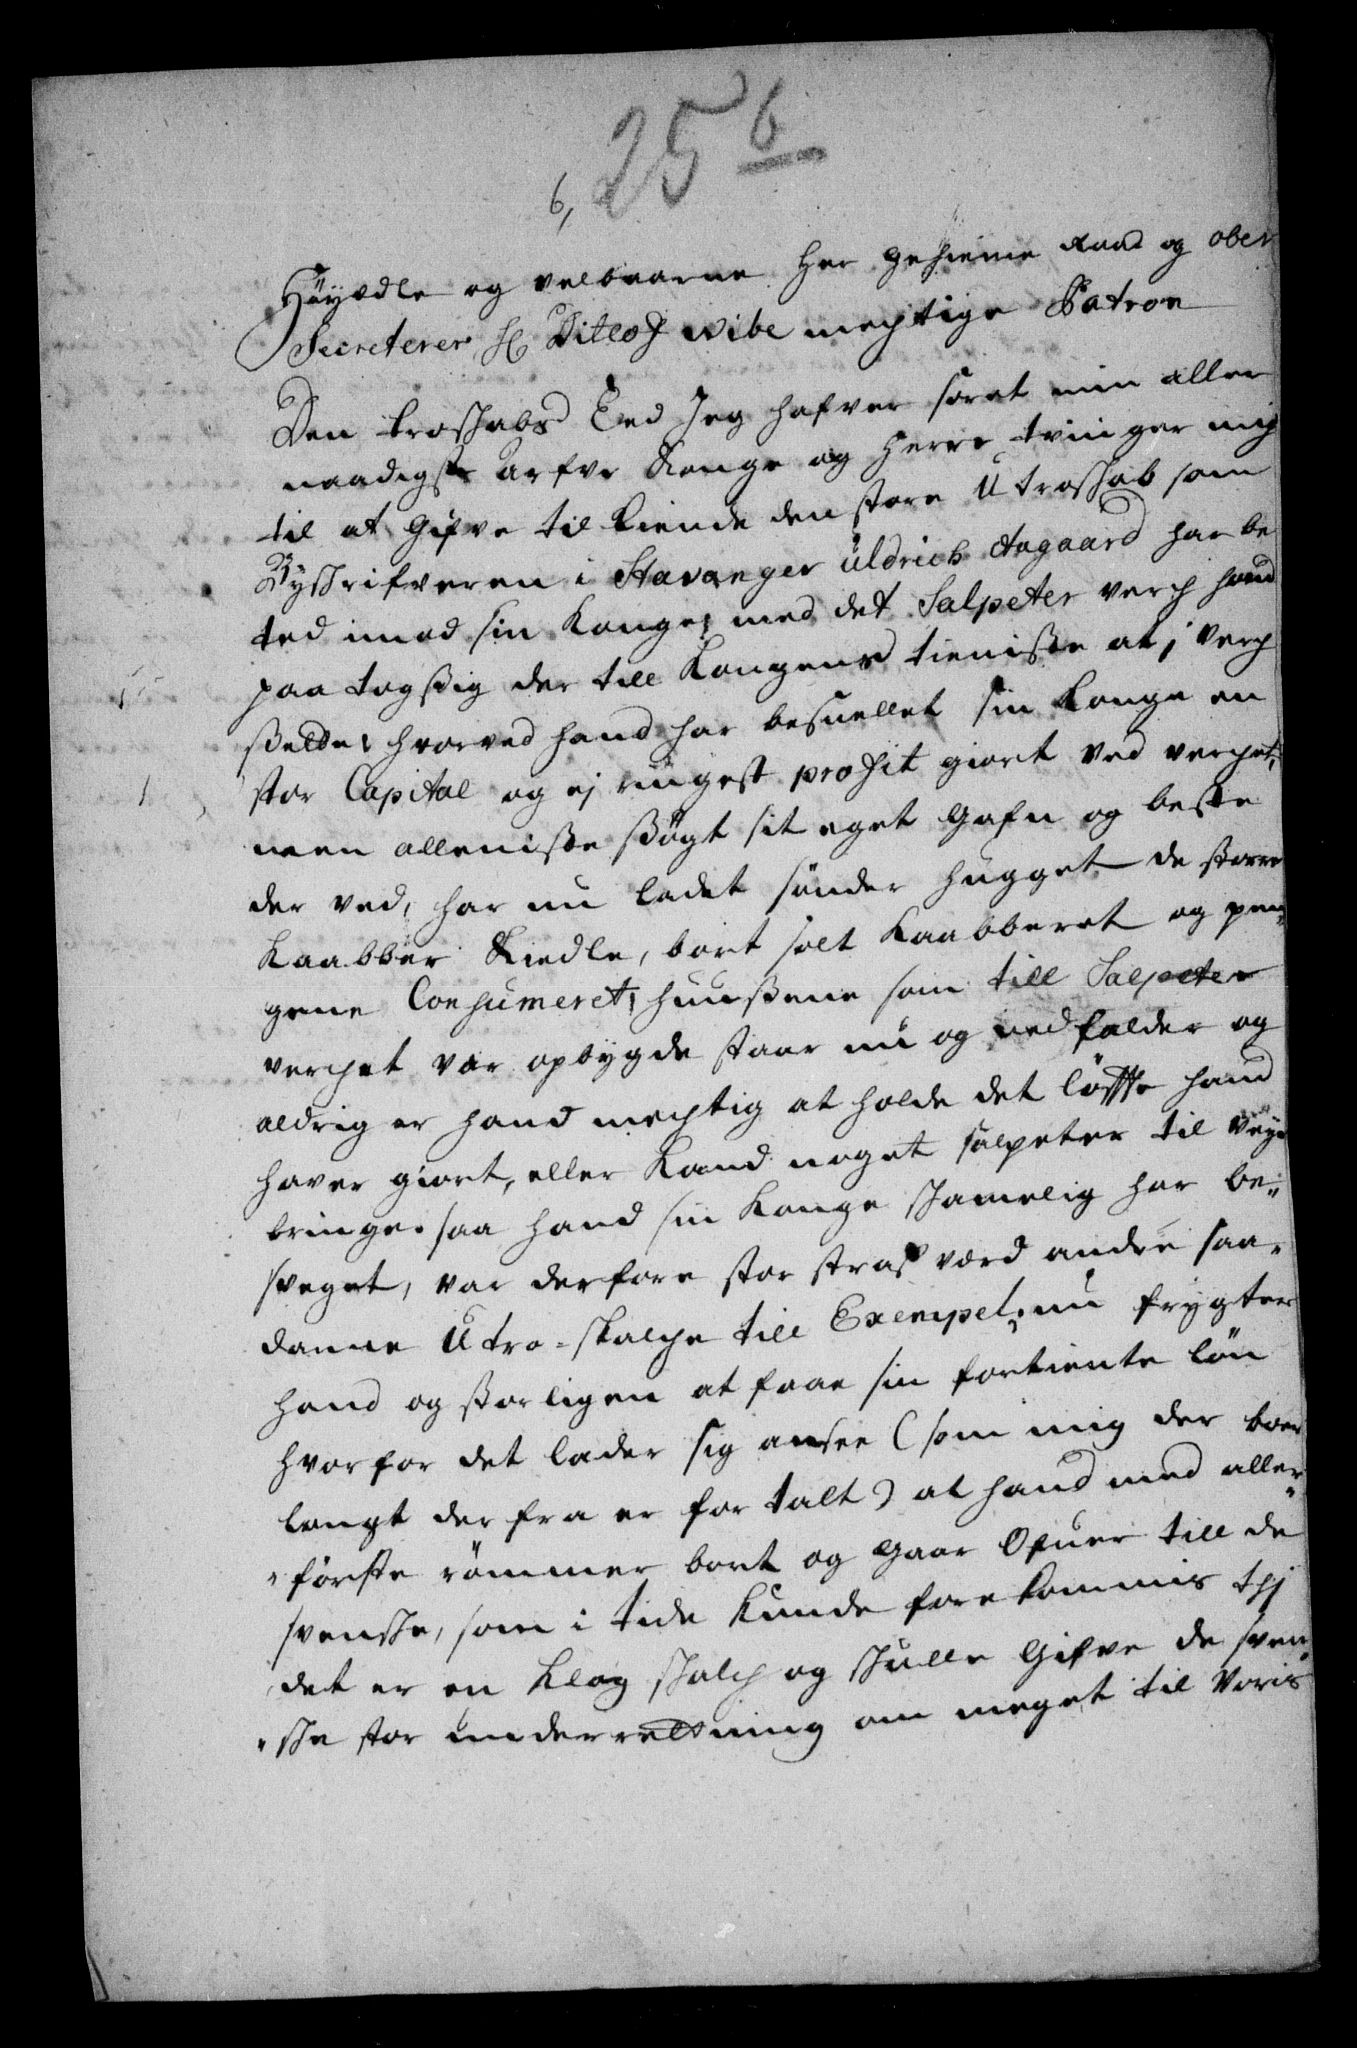 25 b
6,
Höyædle og velbaarne Her geheime Raad og ober
Secreterer Hr Ditlof Wibe megtige Patron
Den troskabs Eed Jeg hafver soret min aller
naadigste Arfve Konge og Herre tvinger mig
til at gifve til kiende den store Utroskab som
Byskrifveren i Stavanger Uldrich Aagaard har be
ted imod sin Konge; med det Salpeter verch hand
paa tog sig der till Kongens tieniste at
hvorved hand har besuellet sin Konge en
stor Capital og ej ringest profit giort ved verchet,
men alleniste søgt sit eget gafn og beste
der ved, har nu ladet sönder hugget de storre
Kaabber Kiedle, bort solt Kaabberet og pen„
gene Consumeret; huusene som till Salpeter
verchet var opbygde staar nu og nedfalder og
aldrig er hand megtig at holde det löffte hand
haver giort, eller Kand noget salpeter til veye
bringe. saa hand sin Konge skamelig har be„
sveget, var derfore stor straf værd andre saa„
danne Utro-skalche till Exempel; nu frygter
hand og storligen at faae sin fortiente lön
hvorfor det lader sig ansee (som mig der boer
langt der fra er for talt) at hand med aller„
„förste römmer bort og gaar Ofuer till de
svenske, som i tide kunde fore kommis thj
det er en klog skalch og skulle gifve de sven„
„ske stor underretning om meget til Voris